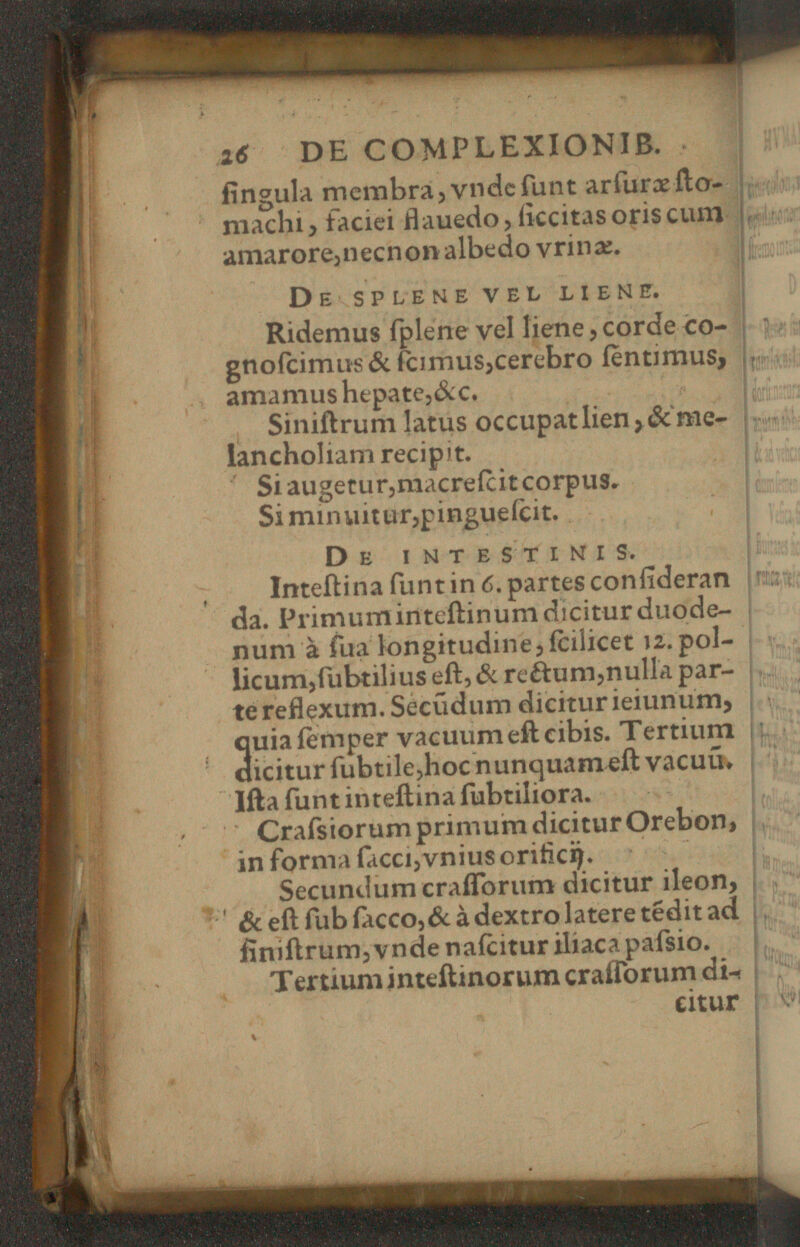 26 DE COMPLEXIONIB.
ſingula membra, vnde ſunt arſuræ ſto-
machi, faciei flauedo, ſiccitas oris cum
amarore, necnon albedo vrinæ.
DE SPLENE VEL LIENE.
Ridemus ſplene vel liene, corde co-
gnoſcimus & ſcimus, cerebro ſentimus,
amamus hepate, &c.
Siniſtrum latus occupat lien, & me-
lancholiam recipit.
Si augetur, macreſcit corpus.
Si minuitur, pingueſcit.
DE INTESTINIS.
Inteſtina ſunt in 6. partes conſideran
da. Primum inteſtinum dicitur duode-
num à ſua longitudine, ſcilicet 12. pol-
licum, ſubtilius eſt, & rectum, nulla par-
te reflexum. Secūdum dicitur ieiunum,
quia ſemper vacuum eſt cibis. Tertium
dicitur ſubtile, hoc nunquam eſt vacuū.
Iſta ſunt inteſtina ſubtiliora.
Craſsiorum primum dicitur Orebon,
in forma ſacci, vnius orificij.
Secundum craſſorum dicitur ileon,
& eſt ſub ſacco, & à dextro latere tēdit ad
ſiniſtrum, vnde naſcitur iliaca paſsio.
Tertium inteſtinorum craſſorum di-
citur